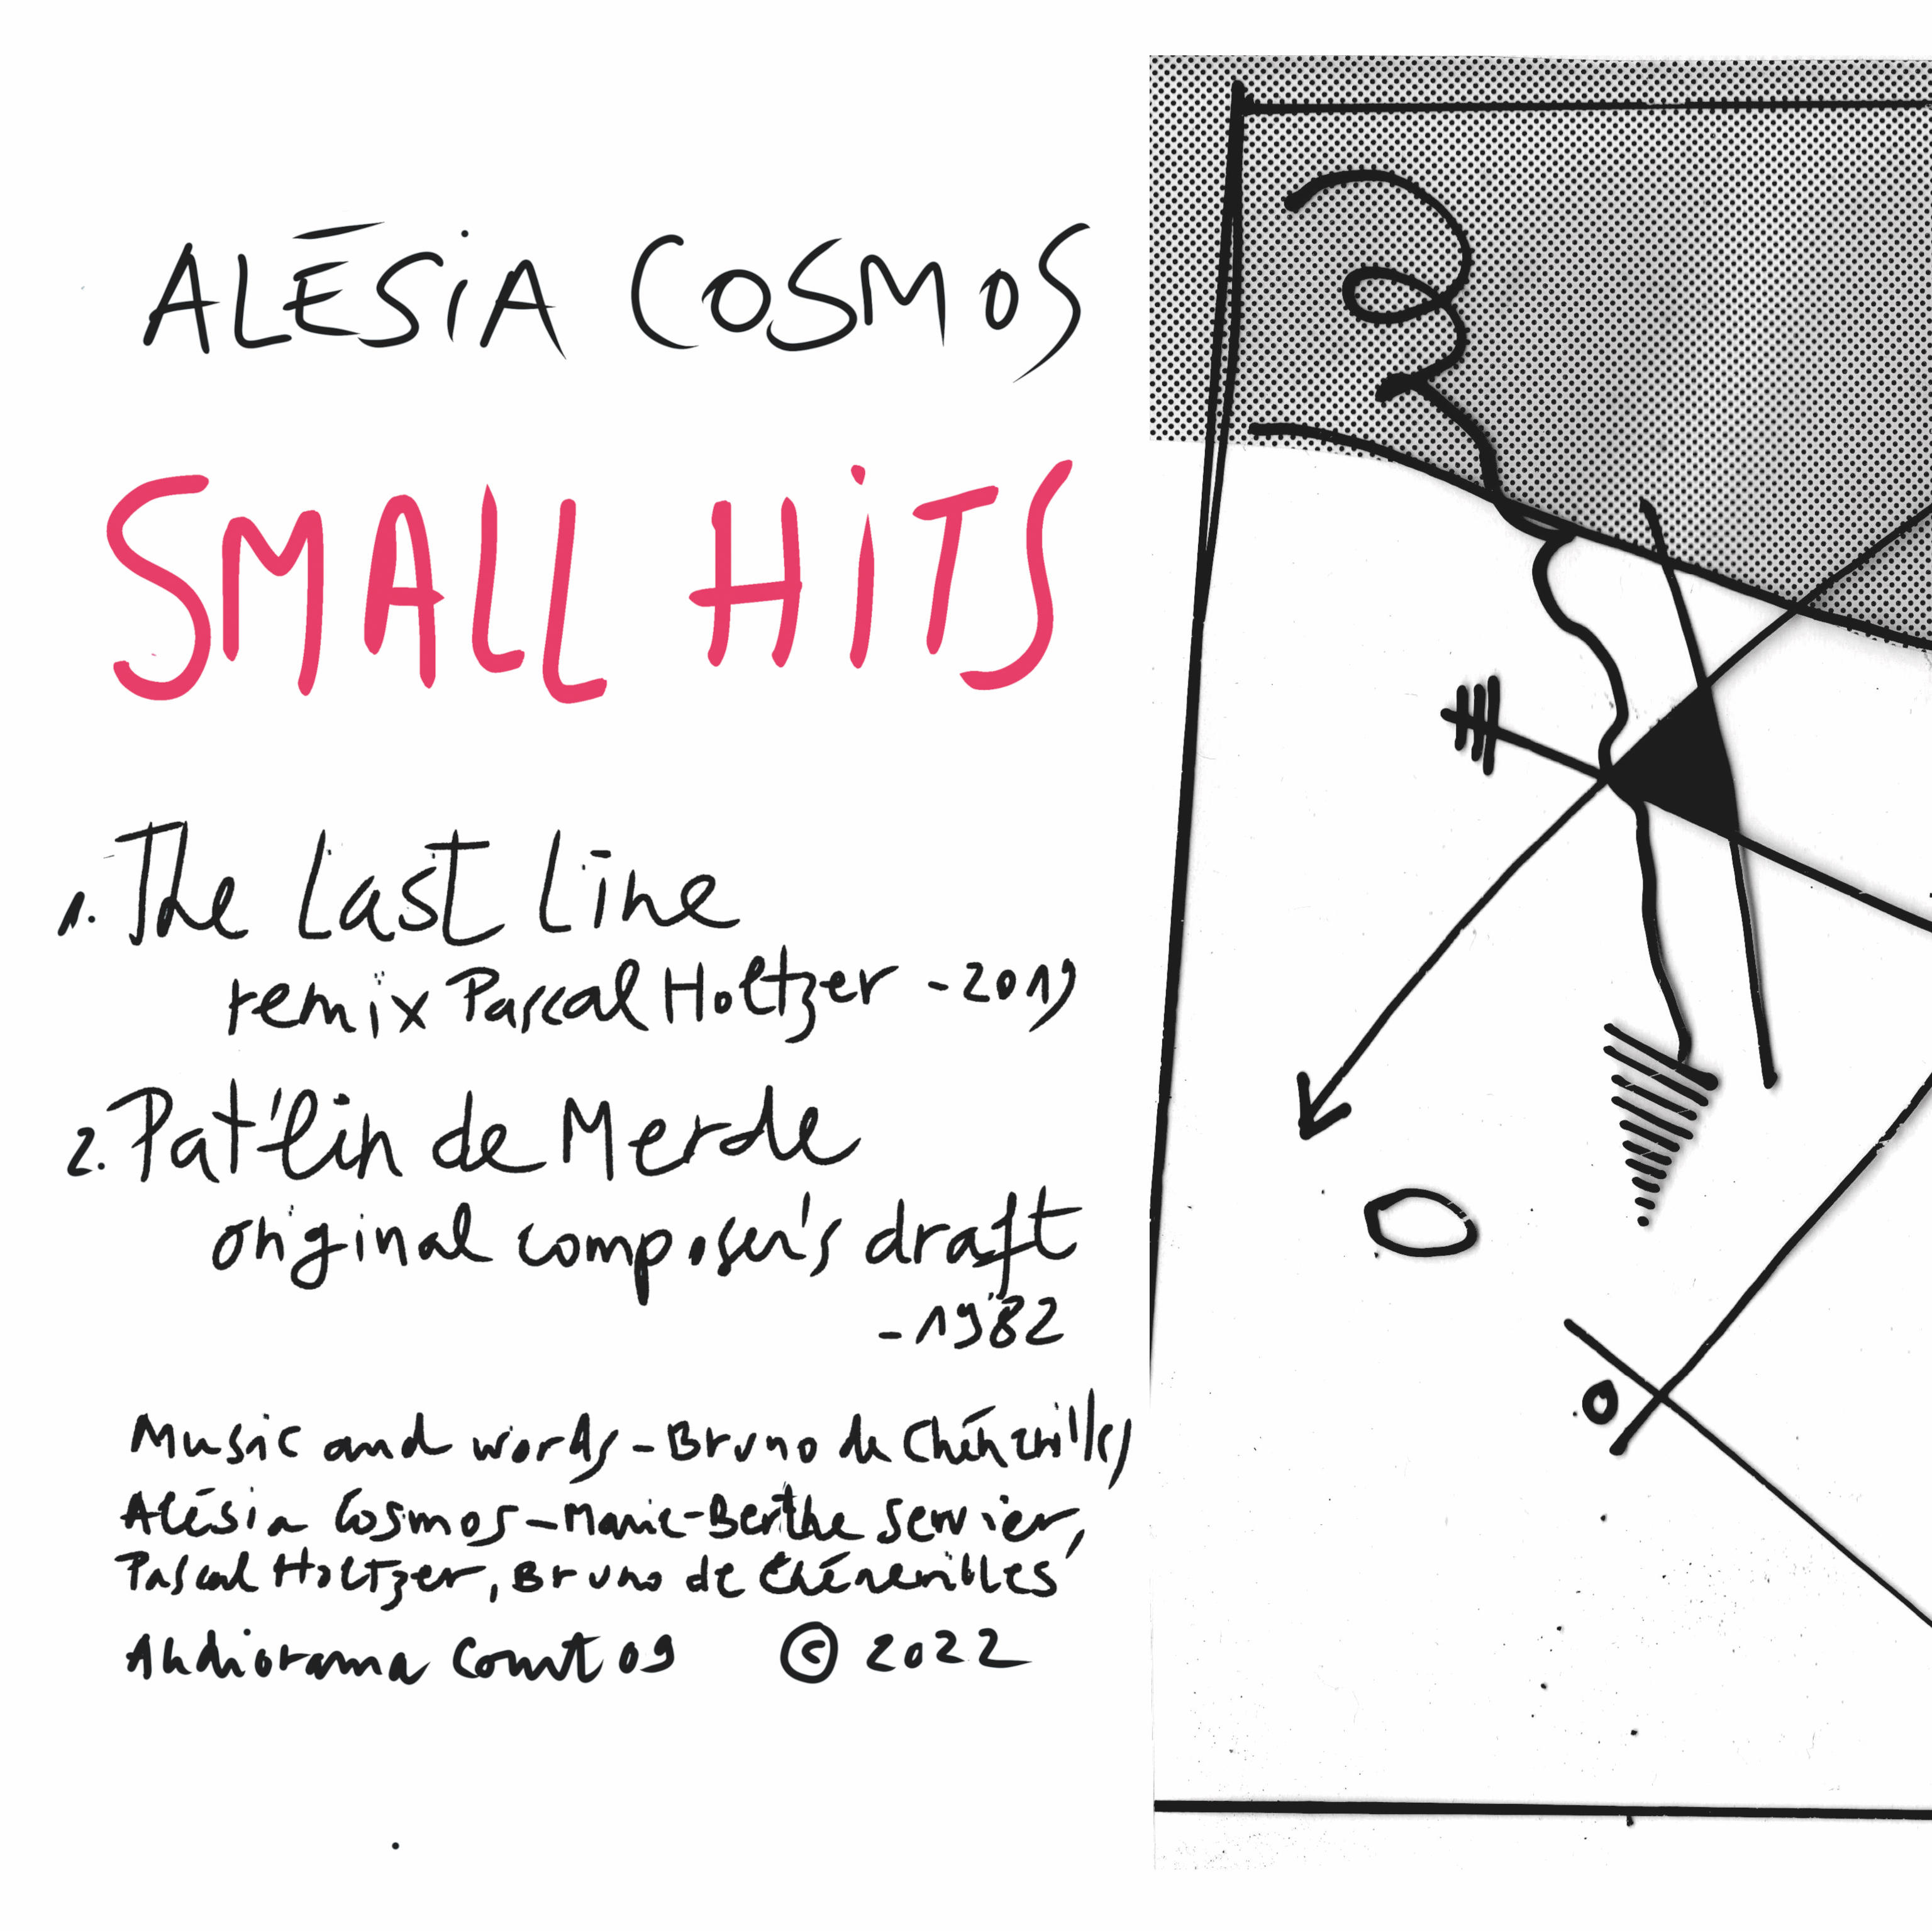 ALÉSiA COSMOS
SMALL HiTS
1. The Last Line
remix Pascal Holtzer - 2019
2. Pat'lin de Merde
original composer's draft
- 1982
Music and words - Bruno de Chénerilles
Alésia Cosmos - Marie-Berthe Servier,
Pascal Holtzer, Bruno de Chénerilles
Audiorama Comt 09 © 2022